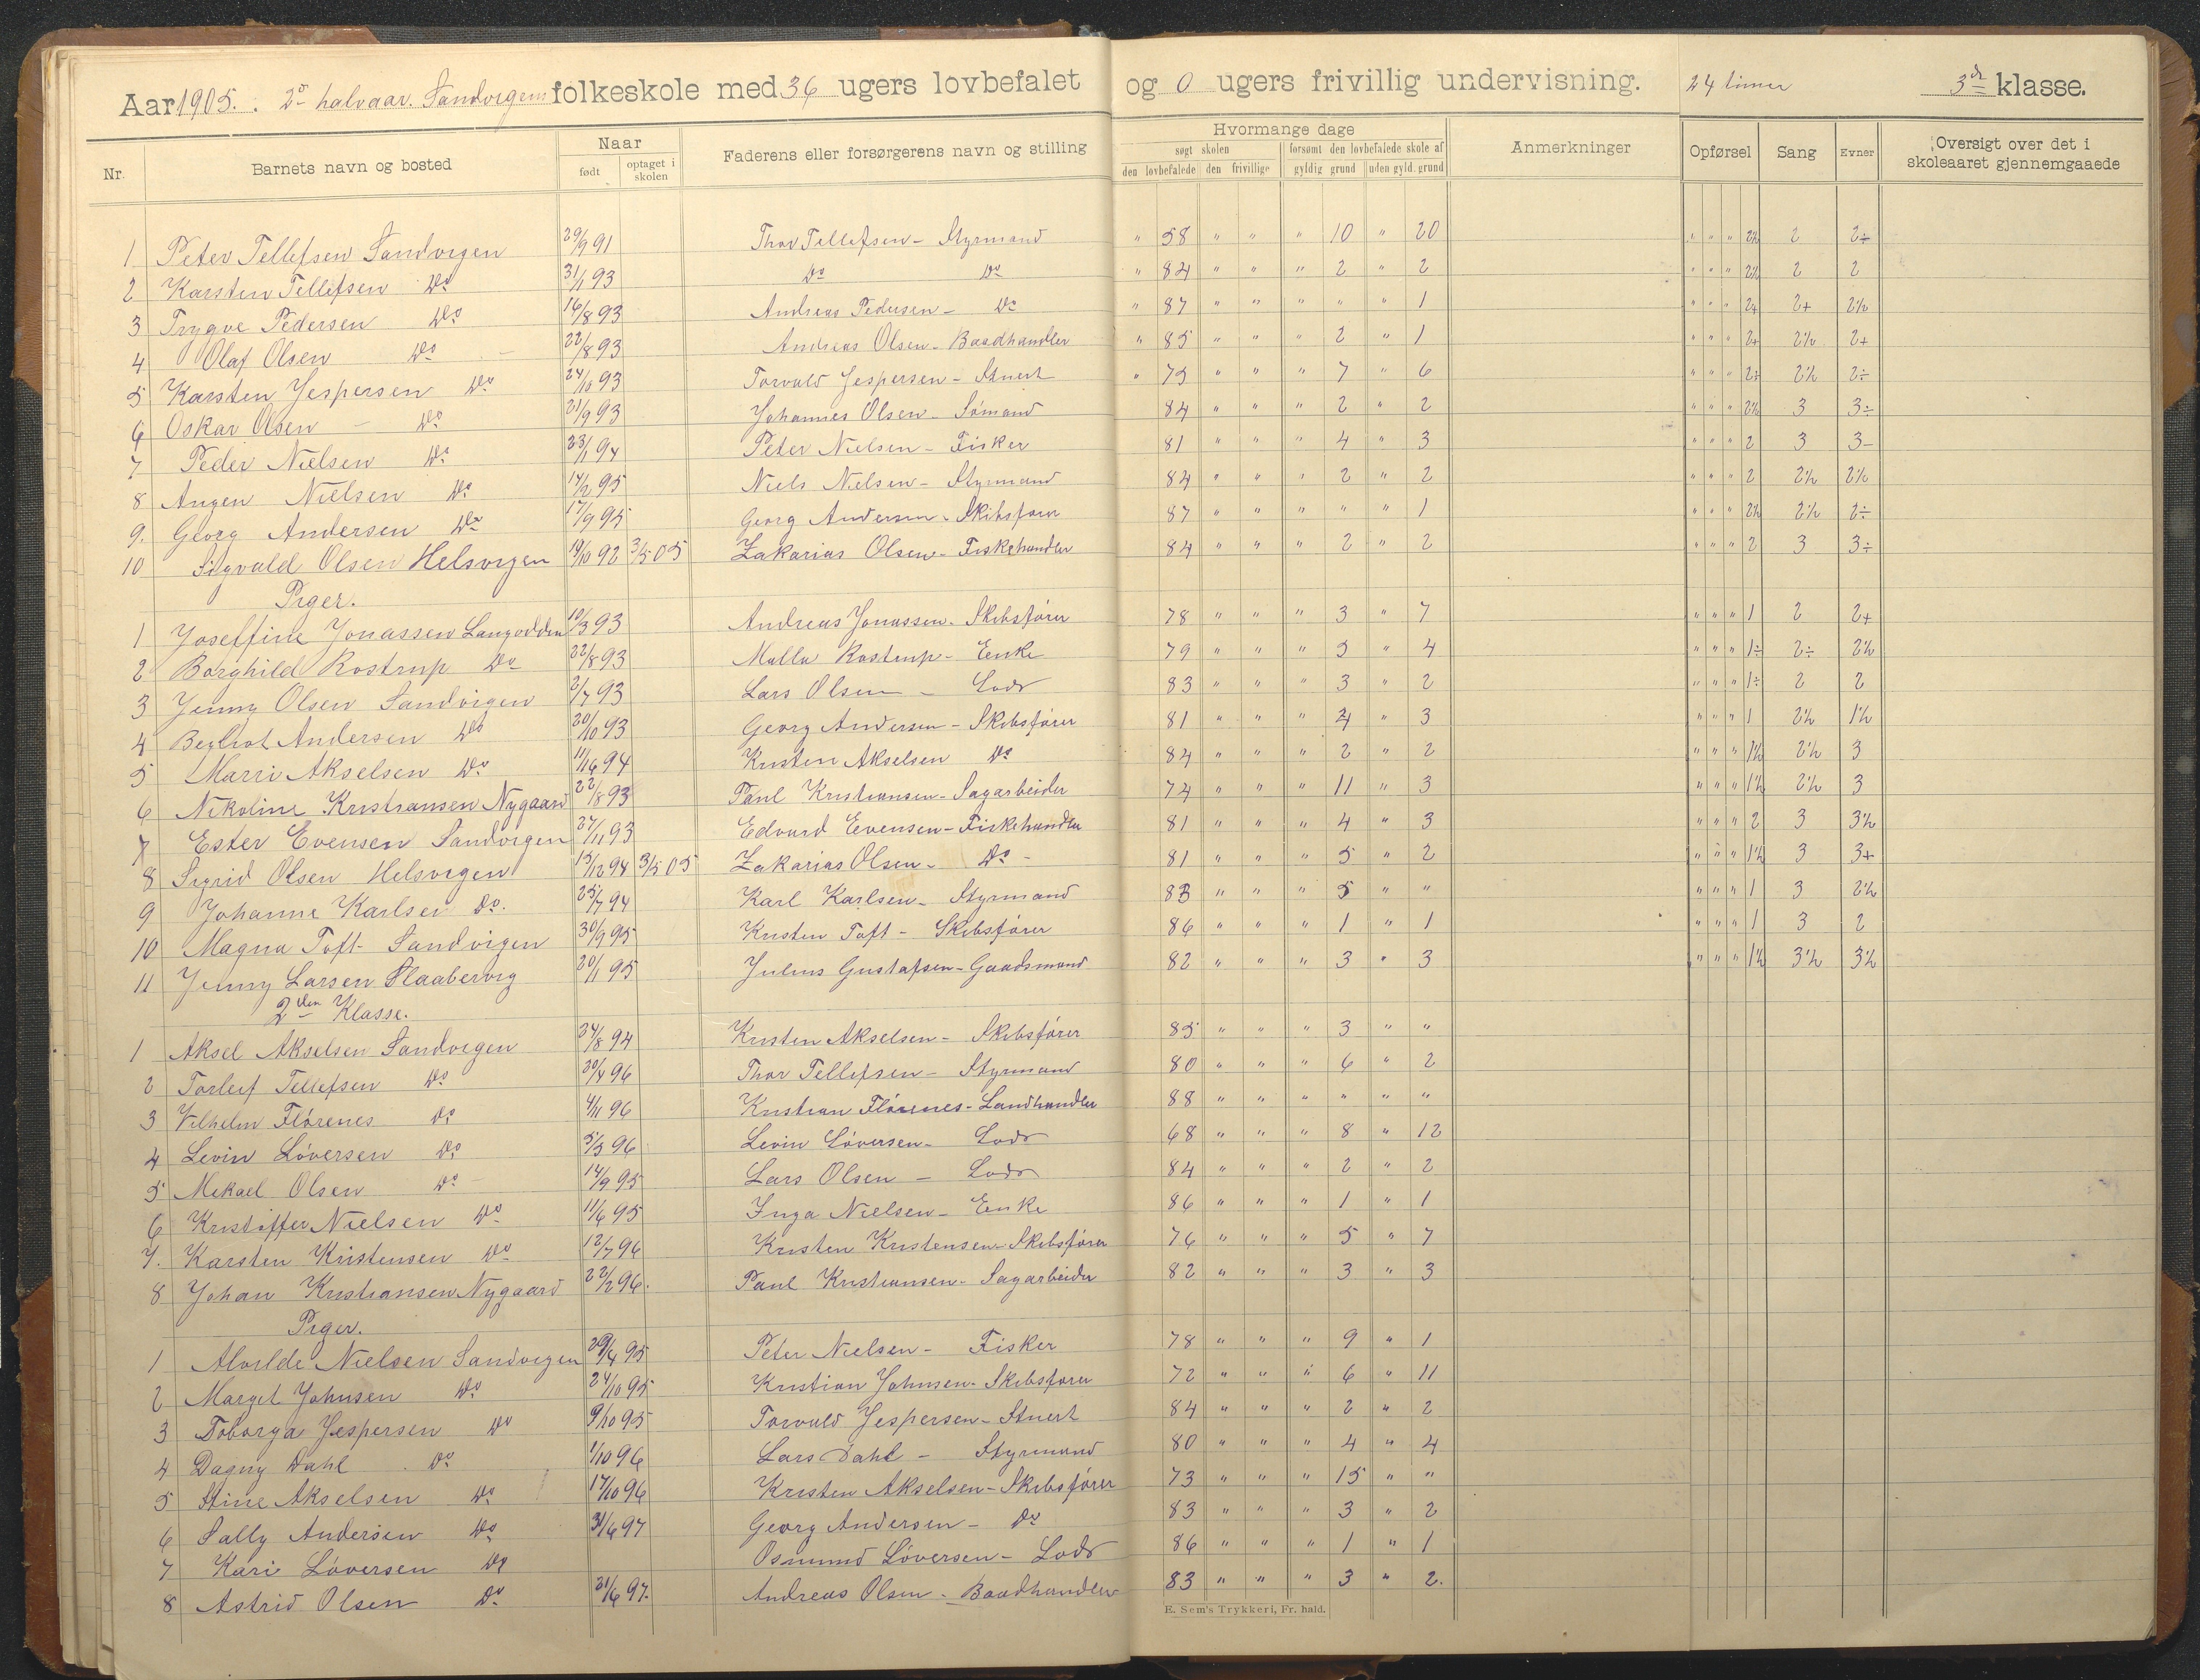 Aar 1905. 2º halvaar. Sandvigens folkeskole med 36 ugers lovbefalet og 0 ugers frivillig undervisning. 24 timer 3de klasse.
Nr. Barnets navn og bosted Naar født optaget i skolen Faderens eller forsørgerens navn og stilling Hvormange dage søgt skolen den lovbefalede den frivillige forsømt den lovbefalede skole af gyldig grund uden gyld. grund Anmerkninger Opførsel Sang Evner Oversigt over det i skoleaaret gjennemgaaede
1 Peter Tellefsen Sandvigen 29/9 91 Thor Tellefsen - Styrmand " 58 " " " 10 " 20 " " " 2½ 2 2÷
2 Karsten Tellefsen Do 31/1 93 Do Do " 84 " " " 2 " 2 " " " 2½ 2 2
3 Trygve Pedersen Do 16/8 93 Andreas Pedersen - Do " 87 " " " " " 1 " " " 2+ 2+ 2½
4 Olaf Olsen Do - 22/8 93 Andreas Olsen - Baadhandler " 85 " " " 2 " 1 " " " 2+ 2½ 2+
5 Karsten Jespersen Do 24/10 93 Torvald Jespersen - Stuert " 75 " " " 7 " 6 " " " 2+ 2½ 2÷
6 Oskar Olsen - Do 21/9 93 Johannes Olsen - Sømand 84 " " " 2 " 2 " " " 2½ 3 3÷
7 Peder Nielsen Do 23/1 94 Peter Nielsen - Fisker 81 " " " 4 " 3 " " " 2 3 3-
8 Angen Nielsen Do 14/2 95 Niels Nielsen - Styrmand 84 " " " 2 " 2 " " " 2 2½ 2½
9. Georg Andersen Do 17/9 95 Georg Andersen - Skibsfører 87 " " " " " 1 " " " 2½ 2½ 2÷
10 Sigvald Olsen Helsvigen 19/10 92 3/5 05 Zakarias Olsen - Fiskehandler 84 " " " 2 " 2 " " " 2 3 3÷
Piger.
1 Joseffine Jonassen Langodden 10/3 93 Andreas Jonassen - Skibsfører 78 " " " 3 " 7 " " " 1 2 2+
2 Borghild Rostrup Do 22/8 93 Malla Rostrup - Enke 79 " " " 5 " 4 " " " 1÷ 2÷ 2½
3 Jenny Olsen Sandvigen 2/7 93 Lars Olsen - Lods 83 " " " 3 " 2 " " " 1÷ 2 2
4 Bergliot Andersen Do 20/10 93 Georg Andersen - Skibsfører 81 " " " 4 " 3 " " " 1 2½ 1½
5 Marri Akselsen Do 94 Kristen Akselsen Do 84 " " " 2 " 2 " " " 1½ 2½ 3
6 Nikoline Kristiansen Nygaard 22/8 93 Paul Kristiansen - Sagarbeider 74 " " " 11 " 3 " " " 1½ 2½ 3
7 Ester Evensen Sandvigen 27/11 93 Edvard Evensen - Fiskehandler 81 " " " 4 " 3 " " " 2 3 3½
8 Sigrid Olsen Helsvigen 15/12 94 3/5 05 Zakarias Olsen - Do - 81 " " " 5 " 2 " " " 1½ 3 3+
9 Johanne Karlsen Do. 25/7 94 Karl Karlsen - Styrmand 83 " " " 5 " " " " " 1 3 2½
10 Magna Toft - Sandvigen 30/9 95 Kristen Toft - Skibsfører 86 " " " 1 " 1 " " " 1 3 2
11 Jenny Larsen Slaabervig 20/1 95 Julius Gustafsen - Gaadsmand 82 " " " 3 " 3 " " " 1½ 3½ 3½
2den Klasse.
1 Aksel Akselsen Sandvigen 24/8 94 Kristen Akselsen - Skibsfører 85 " " " 3 " "
2 Torleif Tellefsen Do 20/4 96 Thor Tellefsen - Styrmand 80 " " " 6 " 2
3 Vilhelm Flørenes Do 4/11 96 Kristian Flørenes - Landhandler 88 " " " " " "
4 Levin Løversen Do 5/3 96 Levin Løversen - Lods 68 " " " 8 " 12
5 Mikael Olsen Do - 14/9 95 Lars Olsen - Lods 84 " " " 2 " 2
6 Kristoffer Nielsen Do 11/6 95 Inga Nielsen - Enke 86 " " " 1 " 1
7. Karsten Kristensen Do 12/7 96 Kristen Kristensen - Skibsfører 76 " " " 5 " 7
8 Johan Kristiansen Nygaard 22/2 96. Paul Kristiansen - Sagarbeider 82 " " " 3 " 3
Piger.
1 Alvilde Nielsen Sandvigen 29/4 95 Peter Nielsen - Fisker 78 " " " 9 " 1
2 Margit Johnsen Do 24/10 95 Kristian Johnsen - Skibsfører 72 " " " 6 " 11
3 Toborga Jespersen Do 9/10 95 Torvald Jespersen - Stuert 84 " " " 2 " 2
4 Dagny Dahl Do 1/10 96 Lars Dahl - Styrmand 80 " " " 4 " 4
5 Stine Akselsen Do 17/10 96 Kristen Akselsen - Skibsfører 73 " " " 15 " "
6 Sally Andersen Do 97 Georg Andersen - Do 83 " " " 3 " 2
7 Kari Løversen Do Osmund Løversen - Lods 86 " " " 1 " 1
8 Astrid Olsen Do 21/6 97. Andreas Olsen - Baadhandler 83 " " " 3 " 2.
E. Sem's Trykkeri, Fr. hald.